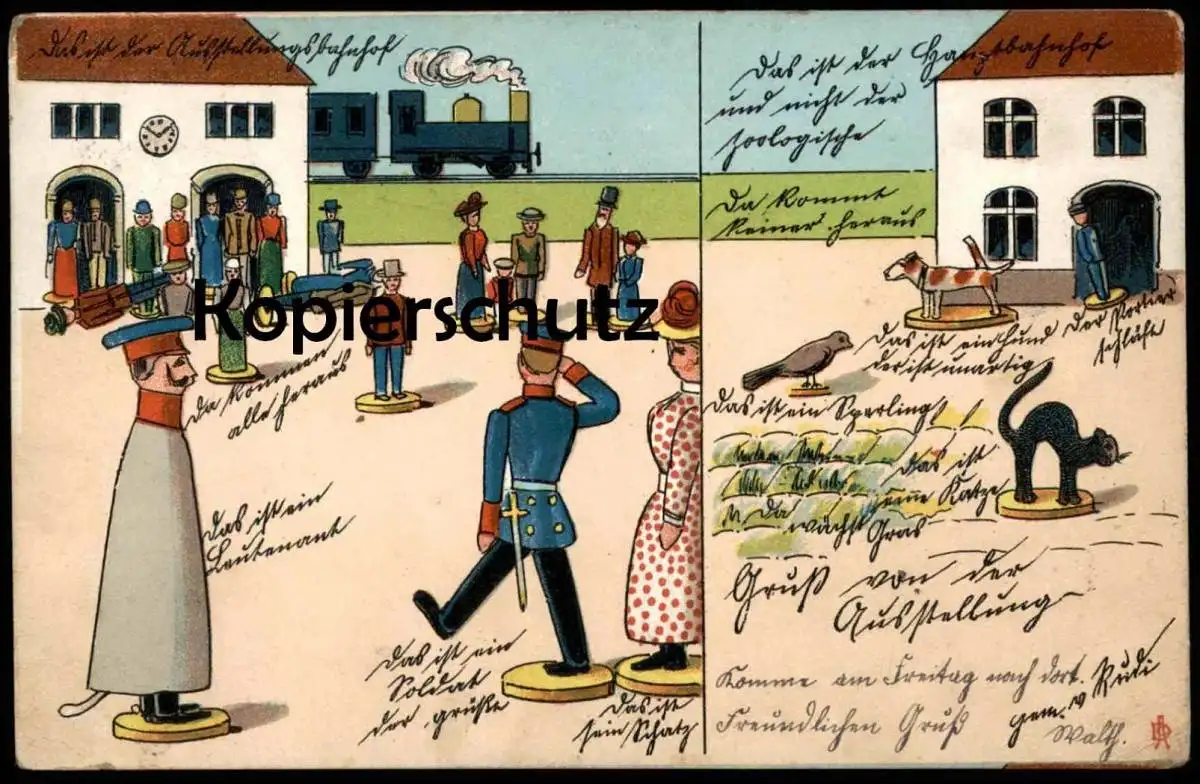 Das ist der Ausstellungsbahnhof
Kopierschutz
Da kommen
alle heraus
Das ist ein
Leutenant
Das ist ein
Soldat
der grüßt
Das ist
sein Schatz
Das ist der Hauptbahnhof
und nicht der
zoologische
Da kommt
keiner heraus
Das ist ein Hund
der ist unartig
Der Portier
schläft
Das ist ein Sperling
Das ist
eine Katze
Da
wächst Gras
Gruß von der
Ausstellung
Komme am Freitag nach dort.
Freundlichen Gruß
Walth.
gem. v Rudi